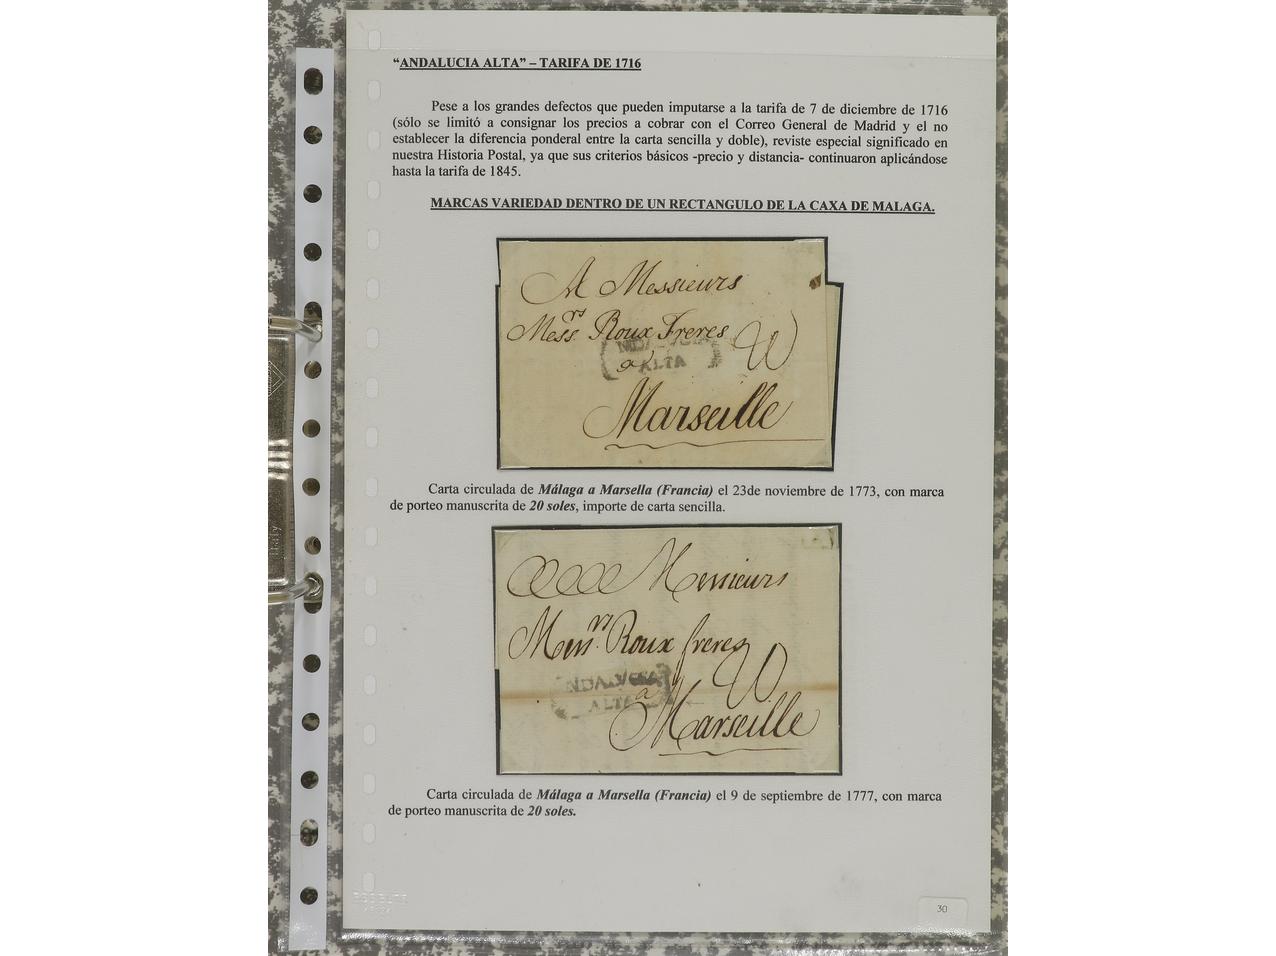 “ANDALUCIA ALTA” – TARIFA DE 1716
Pese a los grandes defectos que pueden imputarse a la tarifa de 7 de diciembre de 1716
(sólo se limitó a consignar los precios a cobrar con el Correo General de Madrid y el no
establecer la diferencia ponderal entre la carta sencilla y doble), reviste especial significado en
nuestra Historia Postal, ya que sus criterios básicos -precio y distancia- continuaron aplicándose
hasta la tarifa de 1845.
MARCAS VARIEDAD DENTRO DE UN RECTANGULO DE LA CAXA DE MALAGA.
A Messieurs
Mess.rs Roux Freres
NDALUCIA
a
ALTA
20
Marseille
Carta circulada de Málaga a Marsella (Francia) el 23de noviembre de 1773, con marca
de porteo manuscrita de 20 soles, importe de carta sencilla.
Messieurs
Mess.rs Roux freres
NDALUCIA
ALTA
a
20
Marseille
Carta circulada de Málaga a Marsella (Francia) el 9 de septiembre de 1777, con marca
de porteo manuscrita de 20 soles.
30